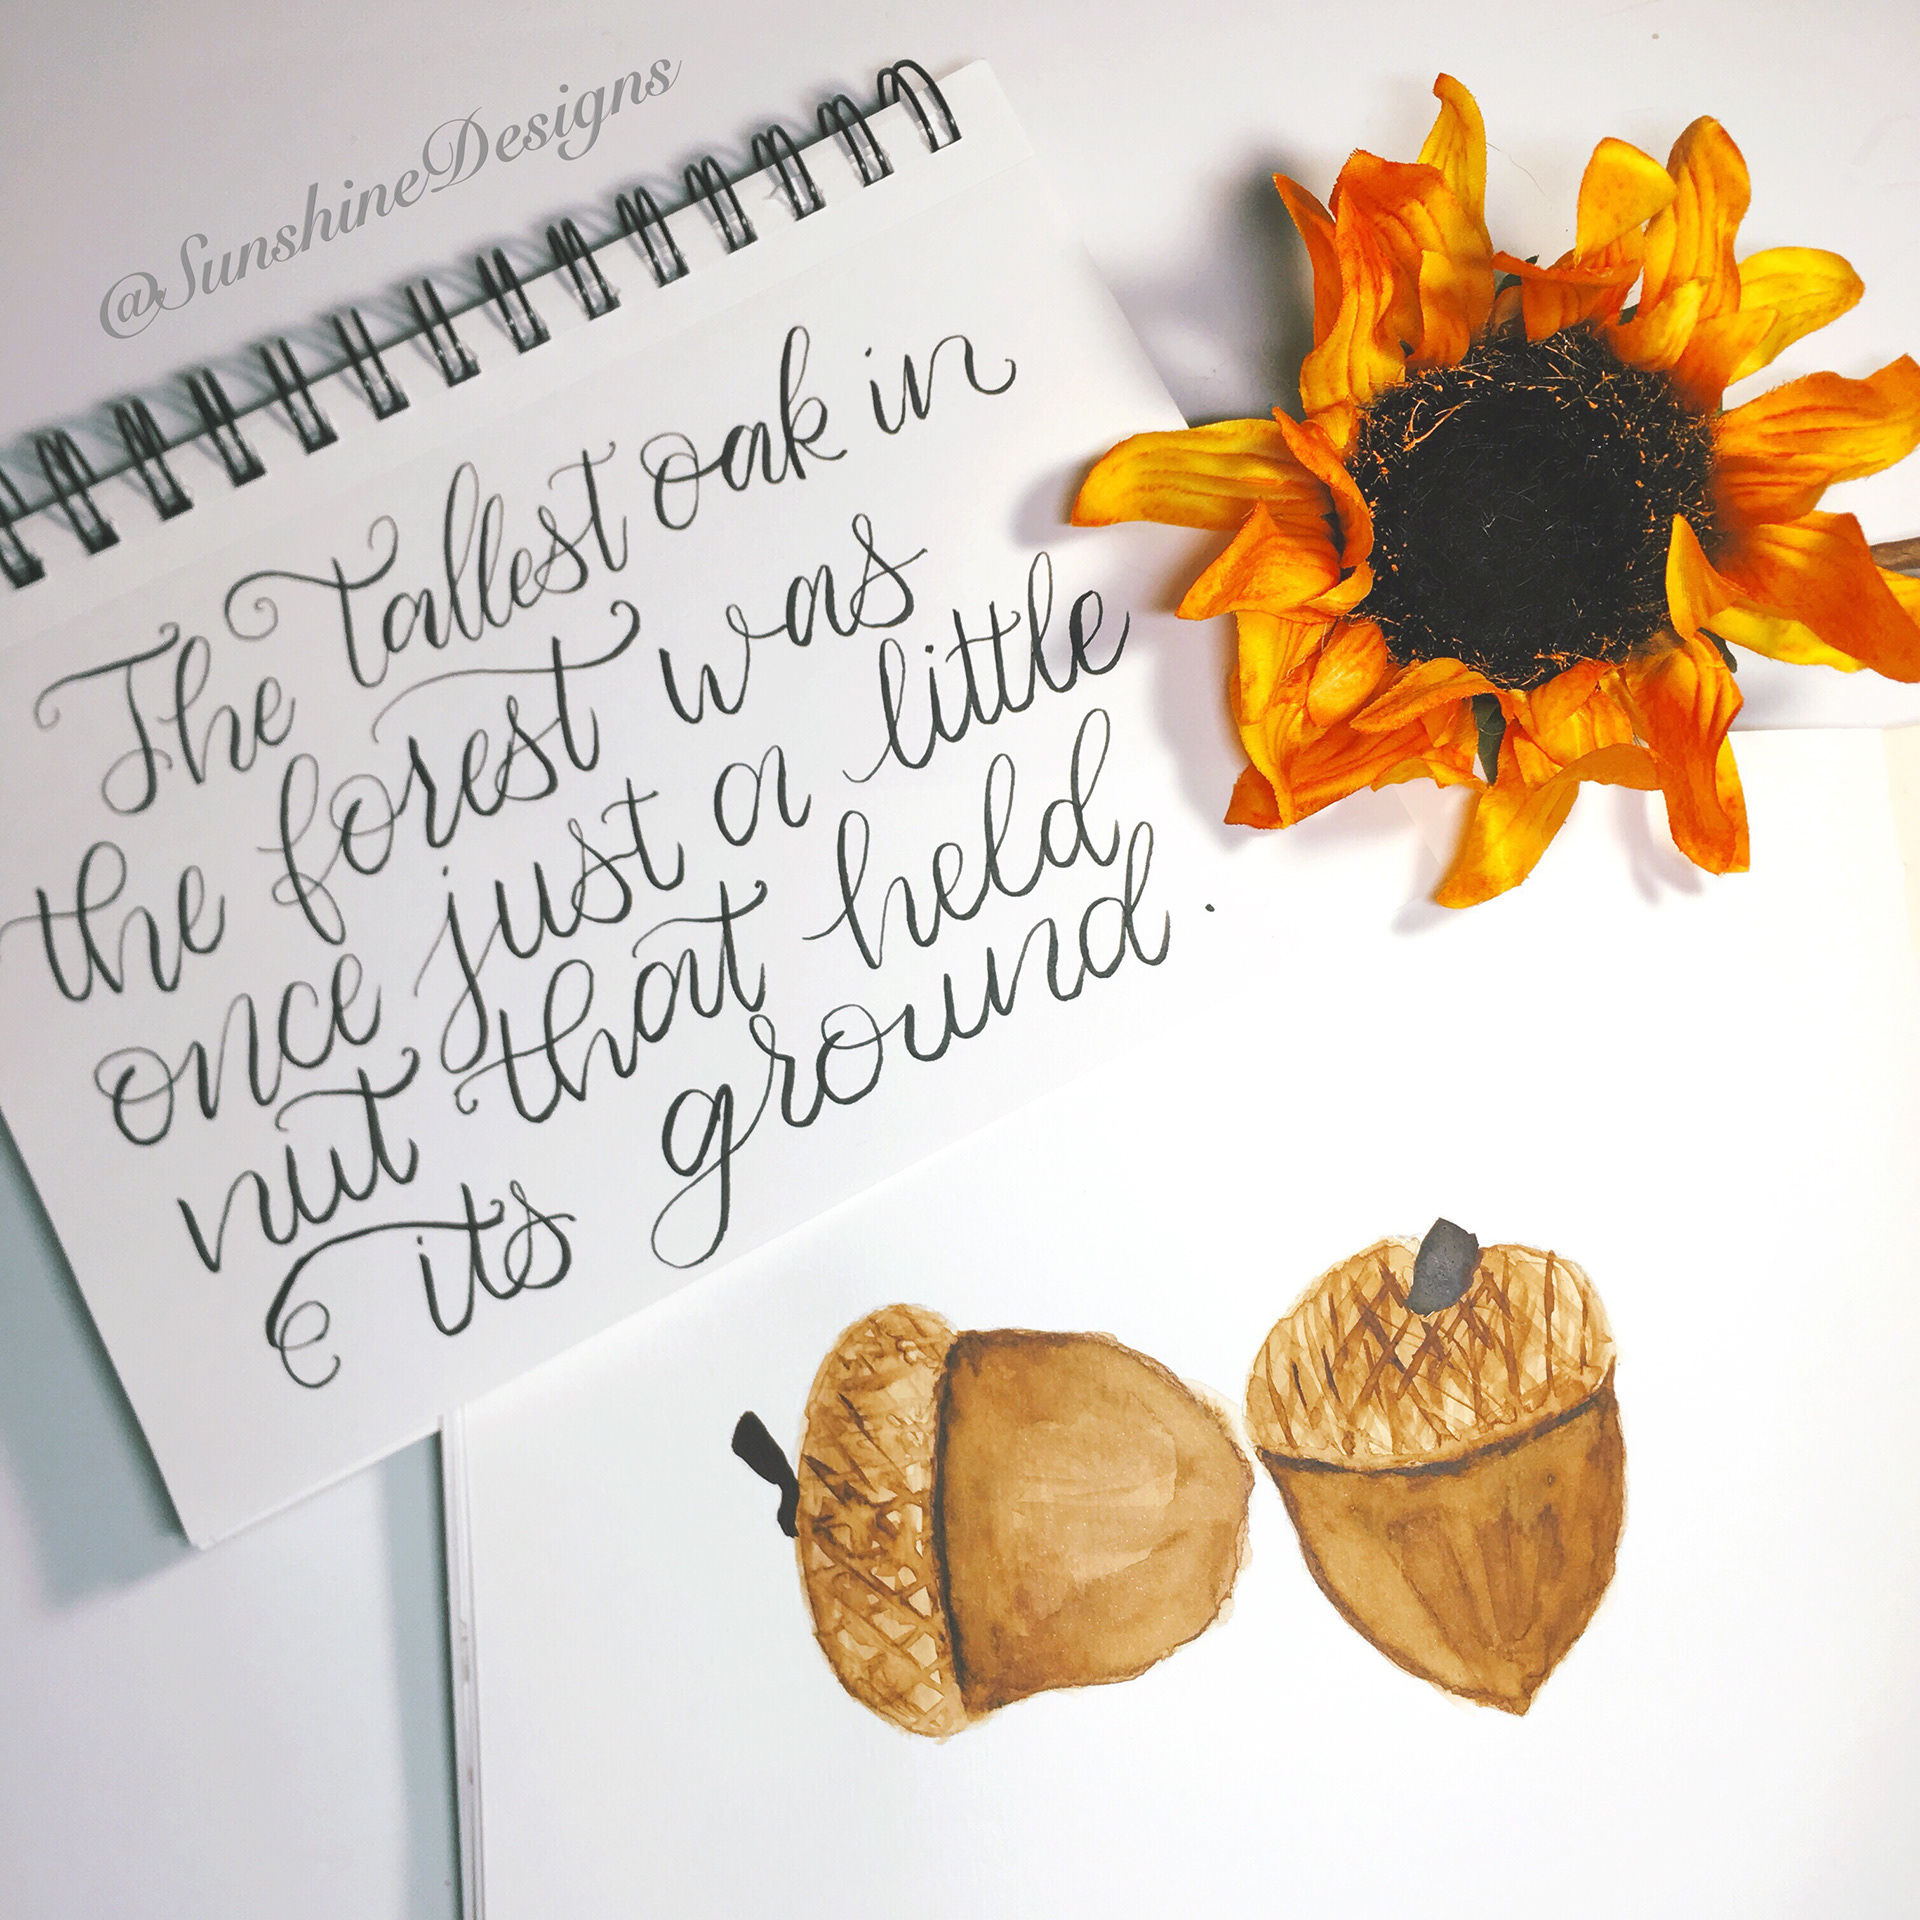 @SunshineDesigns
The tallest oak in
the forest was
once just a little
nut that held
its ground.